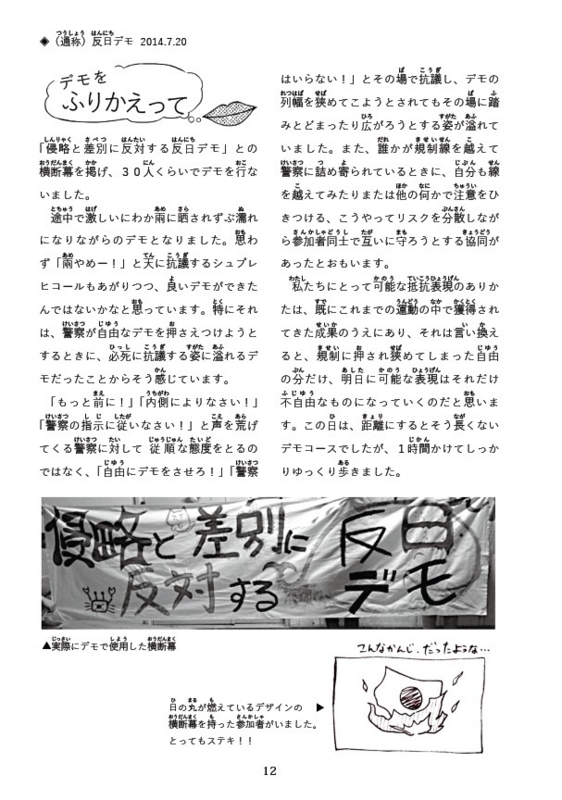 ◈（通称）反日デモ 2014.7.20
デモを
ふりかえって
「侵略と差別に反対する反日デモ」との
横断幕を掲げ、３０人くらいでデモを行な
いました。
途中で激しいにわか雨に晒されずぶ濡れ
になりながらのデモとなりました。思わ
ず「雨やめー！」と天に抗議するシュプレ
ヒコールもあがりつつ、良いデモができた
んではないかなと思っています。特にそれ
は、警察が自由なデモを押さえつけようと
するときに、必死に抗議する姿に溢れるデ
モだったことからそう感じています。
「もっと前に！」「内側によりなさい！」
「警察の指示に従いなさい！」と声を荒げ
てくる警察に対して従順な態度をとるの
ではなく、「自由にデモをさせろ！」「警察
はいらない！」とその場で抗議し、デモの
列幅を狭めてこようとされてもその場に踏
みとどまったり広がろうとする姿が溢れて
いました。また、誰かが規制線を越えて
警察に詰め寄られているときに、自分も線
を越えてみたりまたは他の何かで注意をひ
きつける、こうやってリスクを分散しなが
ら参加者同士で互いに守ろうとする協同が
あったとおもいます。
私たちにとって可能な抵抗表現のありか
たは、既にこれまでの運動の中で獲得され
てきた成果のうえにあり、それは言い換え
ると、規制に押され狭めてしまった自由
の分だけ、明日に可能な表現はそれだけ
不自由なものになっていくのだと思いま
す。この日は、距離にするとそう長くない
デモコースでしたが、１時間かけてしっか
りゆっくり歩きました。
侵略と差別に反日
反対するデモ
▲実際にデモで使用した横断幕
こんなかんじ、だったような…
日の丸が燃えているデザインの ▶
横断幕を持った参加者がいました。
とってもステキ！！
12